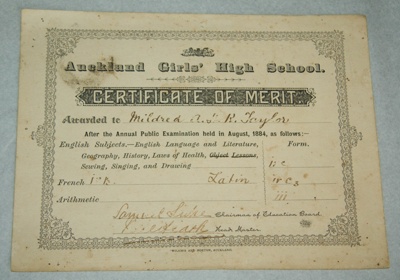 Auckland Girls' High School.
CERTIFICATE OF MERIT.
Awarded to Mildred A. R. Taylor
After the Annual Public Examination held in August, 1884, as follows:—
English Subjects.—English Language and Literature, Form.
Geography, History, Laws of Health, Object Lessons,
Sewing, Singing, and Drawing II C
French Latin
Arithmetic III
Samuel Chairman of Education Board
Head Master.